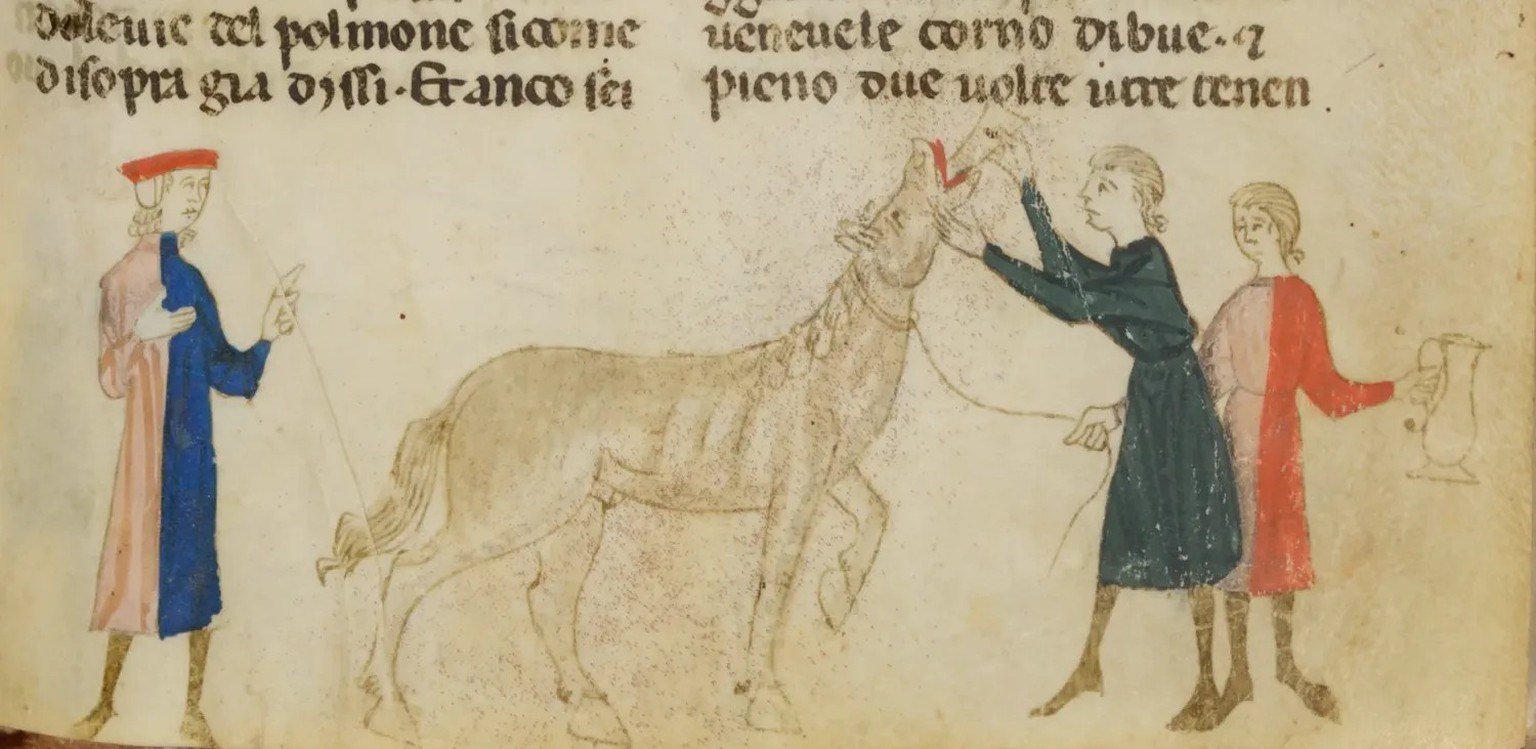 dolente del polmone sicome
disopra gia dissi. Et anco sei
ueneuele corno di bue. ⁊
pieno due uolte